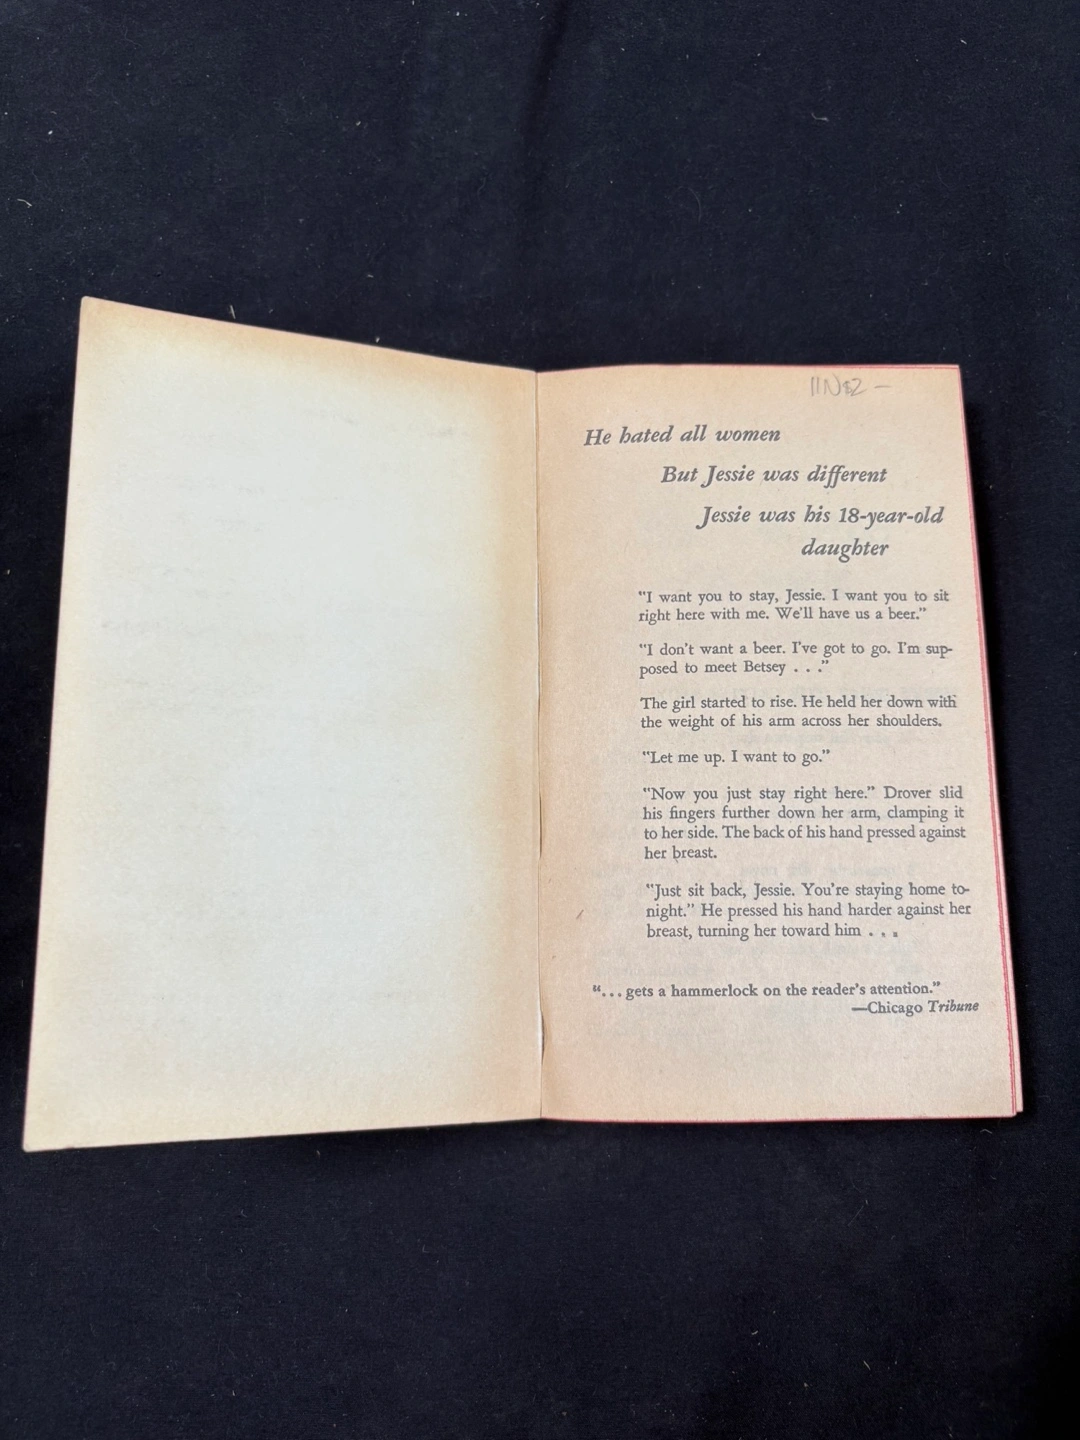 He hated all women
But Jessie was different
Jessie was his 18-year-old
daughter
"I want you to stay, Jessie. I want you to sit
right here with me. We'll have us a beer."
"I don't want a beer. I've got to go. I'm sup-
posed to meet Betsey . . ."
The girl started to rise. He held her down with
the weight of his arm across her shoulders.
"Let me up. I want to go."
"Now you just stay right here." Drover slid
his fingers further down her arm, clamping it
to her side. The back of his hand pressed against
her breast.
"Just sit back, Jessie. You're staying home to-
night." He pressed his hand harder against her
breast, turning her toward him . . .
"... gets a hammerlock on the reader's attention."
—Chicago Tribune